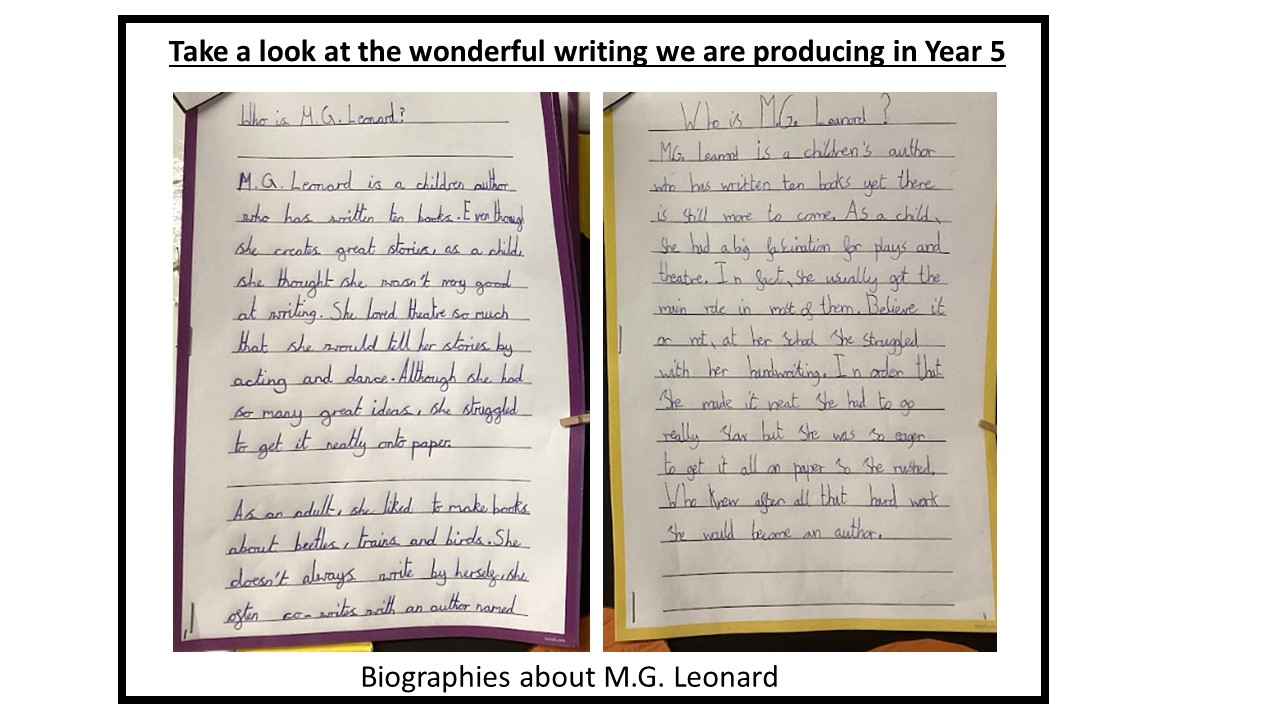 Take a look at the wonderful writing we are producing in Year 5
Who is M.G. Leonard?
M.G. Leonard is a children author
who has written ten books. Even though
she creates great stories, as a child,
she thought she wasn't very good
at writing. She loved theatre so much
that she would tell her stories by
acting and dance. Although she had
so many great ideas, she struggled
to get it neatly onto paper.
As an adult, she liked to make books
about beetles, trains and birds. She
doesn't always write by herself, she
often co-writes with an author named
Who is M.G. Leanord?
MG. Leanord is a children's author
who has written ten books yet there
is still more to come. As a child,
she had a big for plays and
theatre. In fact, she usually got the
main role in most of them. Believe it
or not, at her school she struggled
with her handwriting. In order that
She made it neat she had to go
really slow but she was so eager
to get it all on paper so she rushed.
Who knew after all that hard work
she would become an author.
Biographies about M.G. Leonard